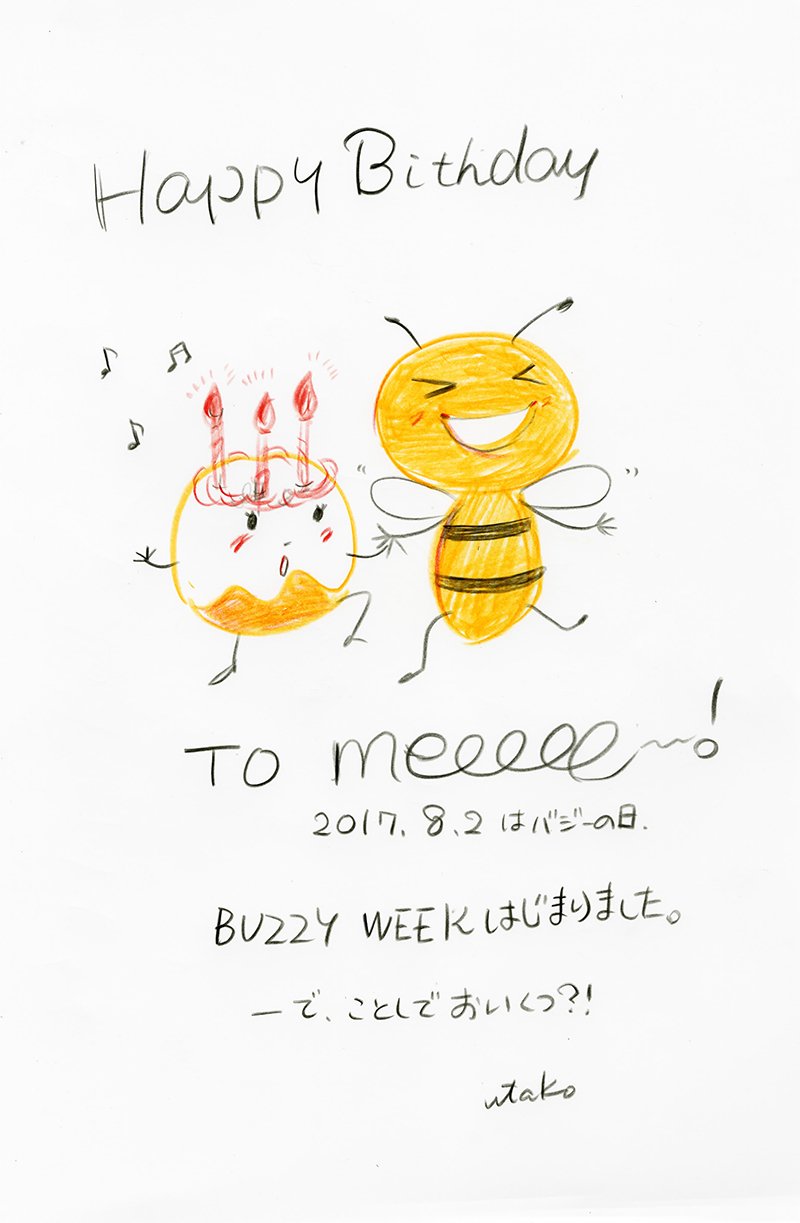 Happy Bithday
TO meeeee〜!
2017. 8. 2 はバジーの日.
BUZZY WEEKはじまりました。
ーで、ことしでおいくつ?!
utako